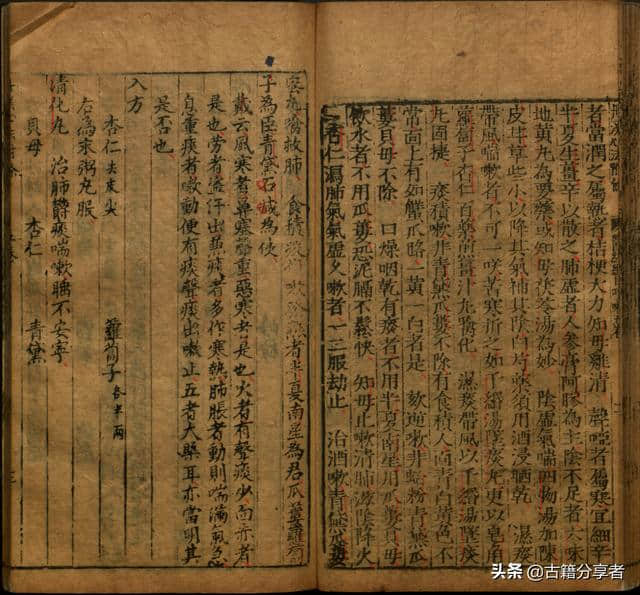 者當潤之屬熱者桔梗大力知母雞清 聲啞者屬寒宜細辛
半夏生薑辛以散之肺虛者人參膏阿膠為主陰不足者六味
地黃丸為要藥或知母茯苓湯為妙 陰虛氣喘四物湯加陳
皮甘草些小以降其氣補其陰白芍藥須用酒浸晒乾 濕痰
帶風喘嗽者不可一味苦寒折之如千緡湯墜痰丸更以皂角
蘿蔔子杏仁百藥煎薑汁丸噙化 濕痰帶風以千緡湯墜痰
丸固捷 痰積嗽非青黛瓜蔞不除有食積人面青黃色不
常面上有如蟹爪路一黃一白者是 欬逆嗽非蛤粉青黛瓜
蔞貝母不除 口燥咽乾有痰者不用半夏南星用瓜蔞貝母
飲水者不用瓜蔞恐泥膈不鬆快 知母止嗽清肺滋陰降火
杏仁瀉肺氣氣虛久嗽者一二服劫止 治酒嗽青黛瓜蔞
子為臣青黛石鹼為使
戴云風寒者鼻塞聲重惡寒者是也火者有聲痰少面赤者
是也勞者盜汗出兼痰者多作寒熱肺脹者動則喘滿氣急
息重痰者嗽動便有痰聲痰出嗽止五者大槩耳亦當明其
是否也
入方
杏仁去皮尖 蘿蔔子各半兩
右為末粥丸服
清化丸 治肺鬱痰喘嗽睡不安寧
貝母 杏仁 青黛
头条 @古籍分享者